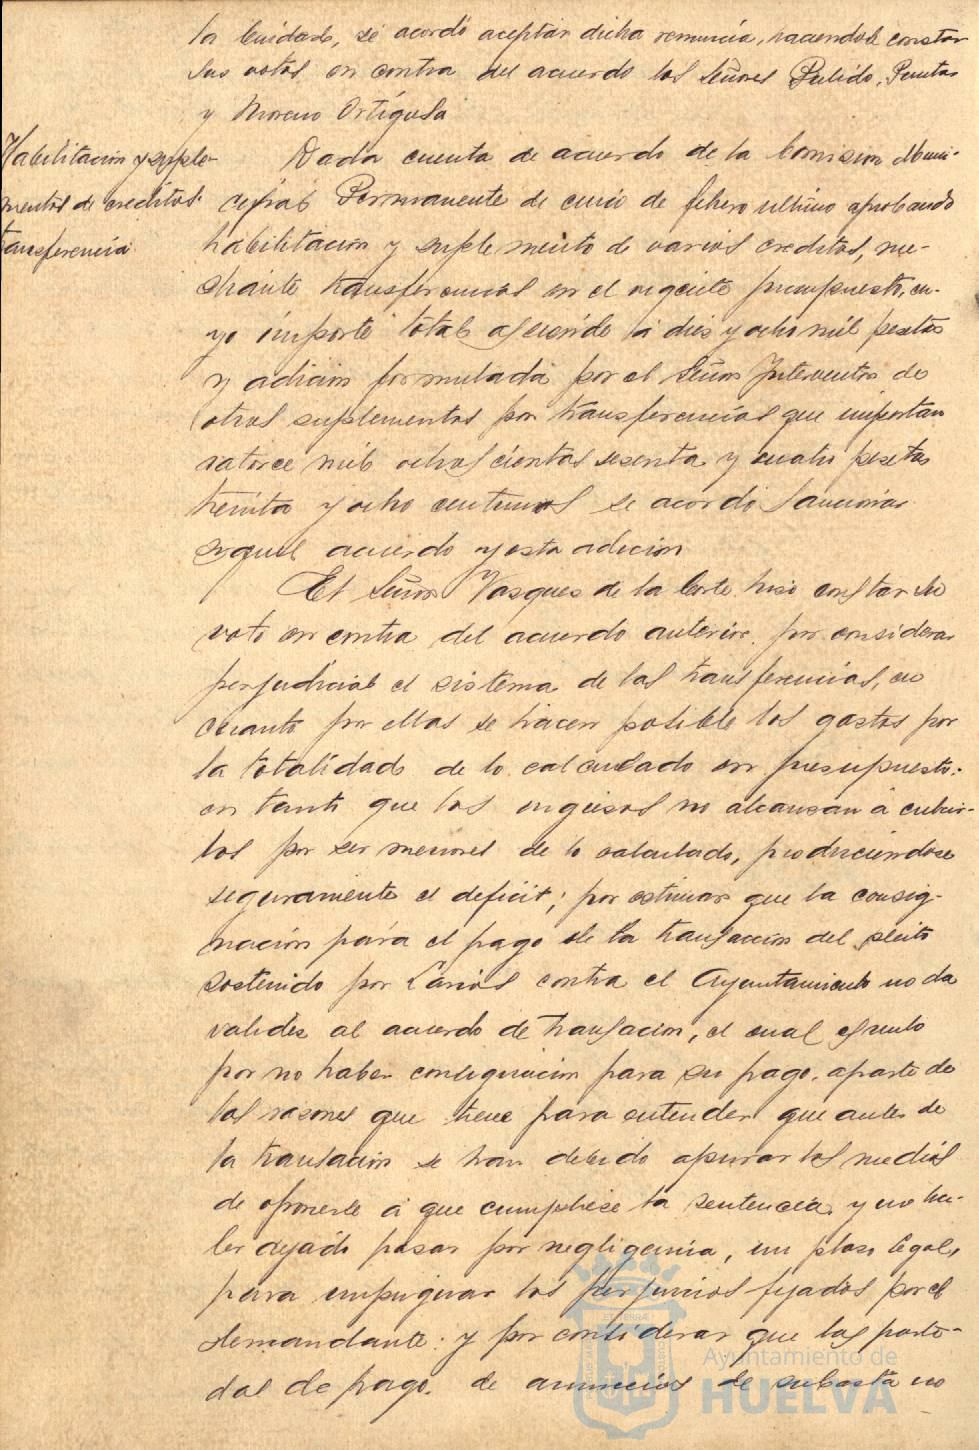 la Ciudad, se acordó aceptar dicha renuncia, haciendole constar
sus votos en contra del acuerdo los Señores Pulido,
y Moreno Ortígosa
Habilitacion y suple-
mentos de creditos.
transferencia
Dada cuenta de acuerdo de la Comision Muni-
cipal Permanente de cinco de febrero ultimo aprobando
habilitacion y suplemento de varios creditos, me-
diante transferencias en el vigente presupuesto, cu-
yo importe total asciende á diez y ocho mil pesetas
y adicion formulada por el Señor Interventor de
otros suplementos por transferencias que importan
catorce mil ochocientas sesenta y cuatro pesetas
treinta y ocho centimos se acordó sancionar
aquel acuerdo y esta adicion
El Señor Vasques de la Corte hiso constar su
voto en contra del acuerdo anterior, por considerar
perjudicial el sistema de las transferencias, en
cuanto por ellas se hacen posible los gastos por
la totalidad de lo calculado en presupuesto.
en tanto que los ingresos no alcansan á cubrir-
los por ser menores de lo calculado, produciendose
seguramente el deficit; por estimar que la consig-
nación para el pago de la transaccion del pleito
sostenido por Larios contra el Ayuntamiento no da
validez al acuerdo de transacion, el cual es nulo
por no haber consignacion para su pago, aparte de
las rasones que tiene para entender que antes de
la transacion se han debido apurar los medios
de oponerse á que cumpliese la sentencia y no ha-
ber dejado pasar por negligencia, un plaso legal,
para impugnar los perjuicios fijados por el
demandante: y por considerar que las parti-
das de pago, de anuncios de subasta no
Ayuntamiento de
HUELVA